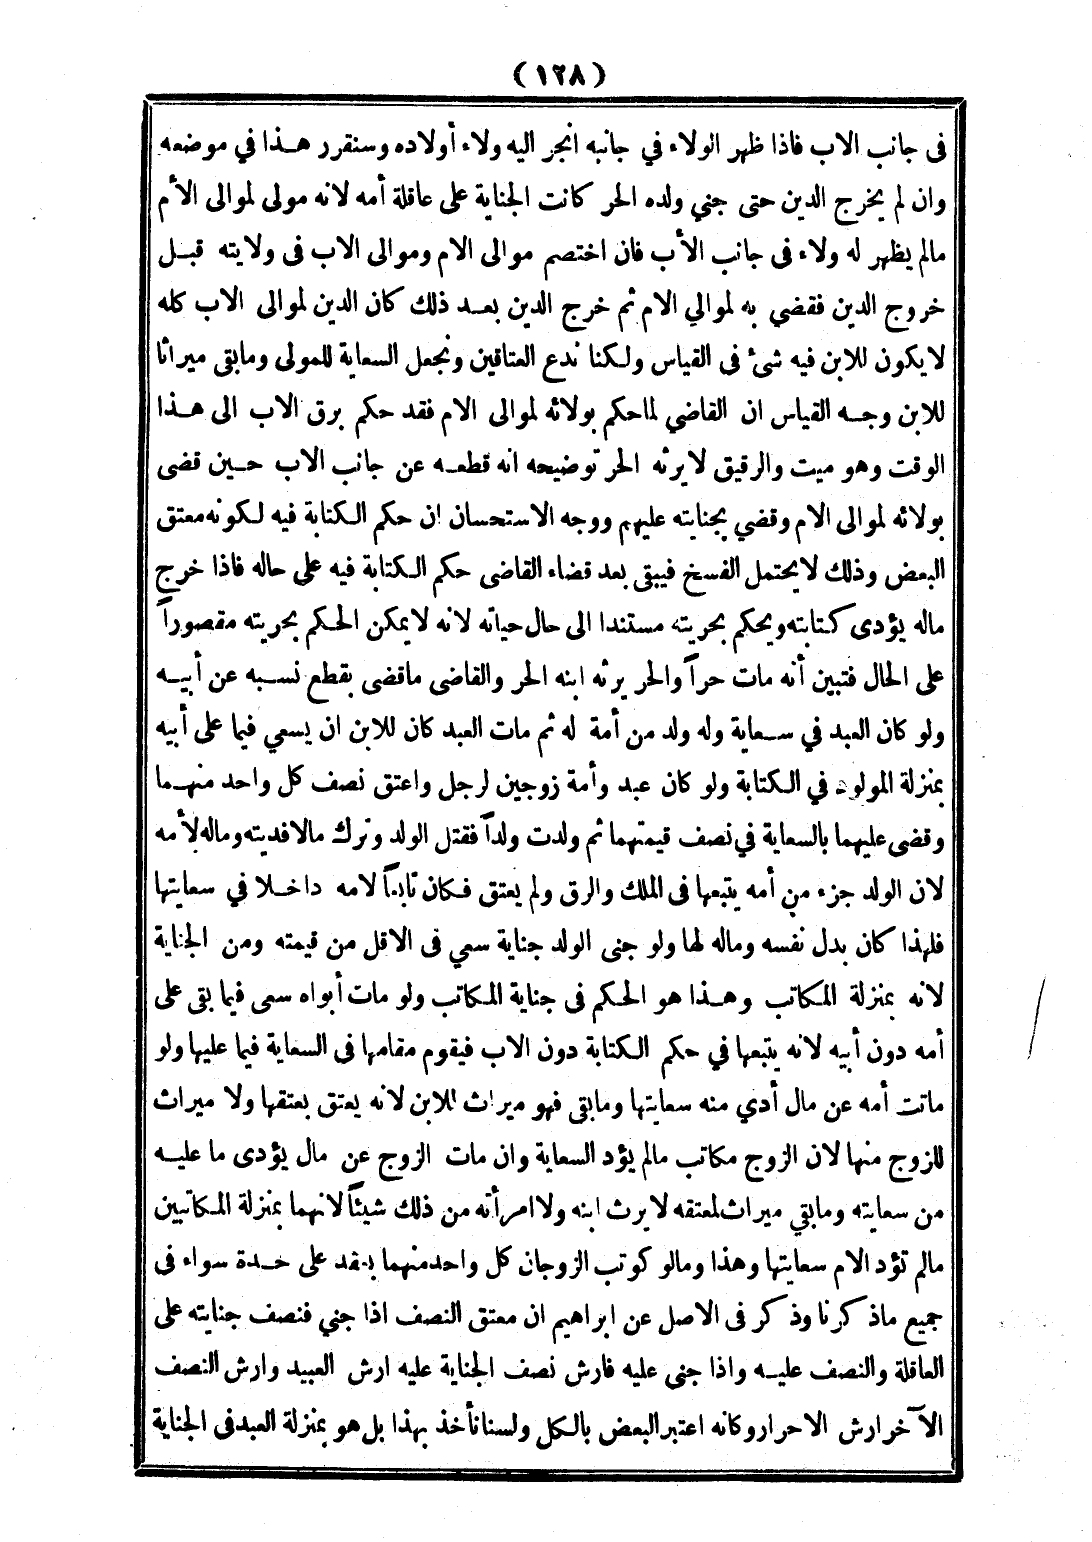 (١٢٨)
فى جانب الاب فاذا ظهر الولاء في جانبه انجر اليه ولاء أولاده وسنقرر هذا في موضعه
وان لم يخرج الدين حتى جني ولده الحر كانت الجناية على عاقلة أمه لانه مولى لموالى الأم
مالم يظهر له ولاء فى جانب الأب فان اختصم موالى الام وموالى الاب فى ولايته قبل
خروج الدين فقضي به لموالي الام ثم خرج الدين بعد ذلك كان الدين لموالى الاب كله
لايكون للابن فيه شئ فى القياس ولكنا ندع العتاقين ونجعل السعاية للمولى ومابقى ميراثا
للابن وجه القياس ان القاضي لماحكم بولائه لموالى الام فقد حكم برق الاب الى هذا
الوقت وهو ميت والرقيق لايرثه الحر توضيحه انه قطعه عن جانب الاب حين قضى
بولائه لموالى الام وقضي بجنايته عليهم ووجه الاستحسان ان حكم الكتابة فيه لكونه معتق
البعض وذلك لايحتمل الفسخ فيبقى بعد قضاء القاضى حكم الكتابة فيه على حاله فاذا خرج
ماله يؤدى كتابته ويحكم بحريته مستندا الى حال حياته لانه لايمكن الحكم بحريته مقصوراً
على الحال فتبين أنه مات حراً والحر يرثه ابنه الحر والقاضى ماقضى بقطع نسبه عن أبيه
ولو كان العبد في سعاية وله ولد من أمة له ثم مات العبد كان للابن ان يسعي فيما على أبيه
بمنزلة المولود في الكتابة ولو كان عبد وأمة زوجين لرجل واعتق نصف كل واحد منهما
وقضى عليهما بالسعاية في نصف قيمتهما ثم ولدت ولداً فقتل الولد وترك مالا فديته وماله لأمه
لان الولد جزء من أمه يتبعها فى الملك والرق ولم يعتق فكان تابعاً لامه داخلا في سعايتها
فلهذا كان بدل نفسه وماله لها ولو جنى الولد جناية سعي فى الاقل من قيمته ومن الجناية
لانه بمنزلة المكاتب وهذا هو الحكم فى جناية المكاتب ولو مات أبواه سعى فيما بقى على
أمه دون أبيه لانه يتبعها في حكم الكتابة دون الاب فيقوم مقامها فى السعاية فيما عليها ولو
ماتت أمه عن مال أدي منه سعايتها ومابقى فهو ميراث للابن لانه يعتق بعتقها ولا ميراث
للزوج منها لان الزوج مكاتب مالم يؤد السعاية وان مات الزوج عن مال يؤدى ما عليه
من سعايته ومابقي ميراث لمعتقه لايرث ابنه ولا امرأته من ذلك شيئاً لانهما بمنزلة المكاتبين
مالم تؤد الام سعايتها وهذا ومالو كوتب الزوجان كل واحدمنهما بعقد على حدة سواء فى
جميع ماذكرنا وذكر فى الاصل عن ابراهيم ان معتق النصف اذا جني فنصف جنايته على
العاقلة والنصف عليه واذا جنى عليه فارش نصف الجناية عليه ارش العبيد وارش النصف
الآخر ارش الاحرار وكانه اعتبر البعض بالكل ولسنا نأخذ بهذا بل هو بمنزلة العبد فى الجناية